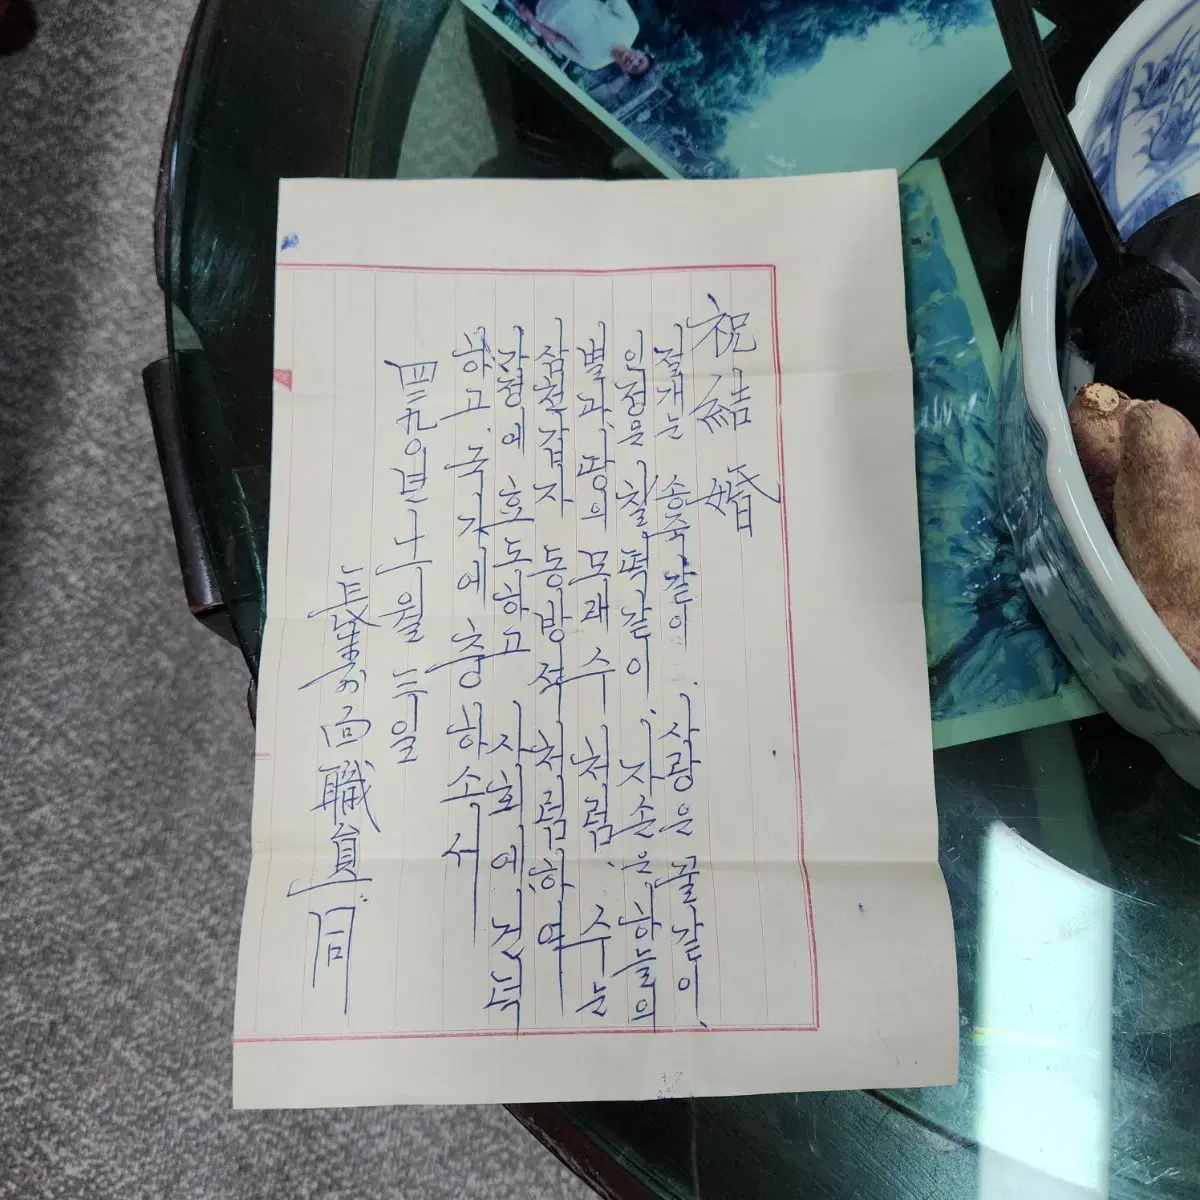 祝結婚
절개는 송죽같이. 사랑은 꿀같이.
인정은 찰떡같이. 자손은 하늘의
별과, 땅의 모래 수 처럼. 수는
삼천갑자 동방석 처럼하여
가정에 효도하고 사회에 건되
하고. 국가에 충하소서
四二九〇년 十一월 三일
長集面職員一同